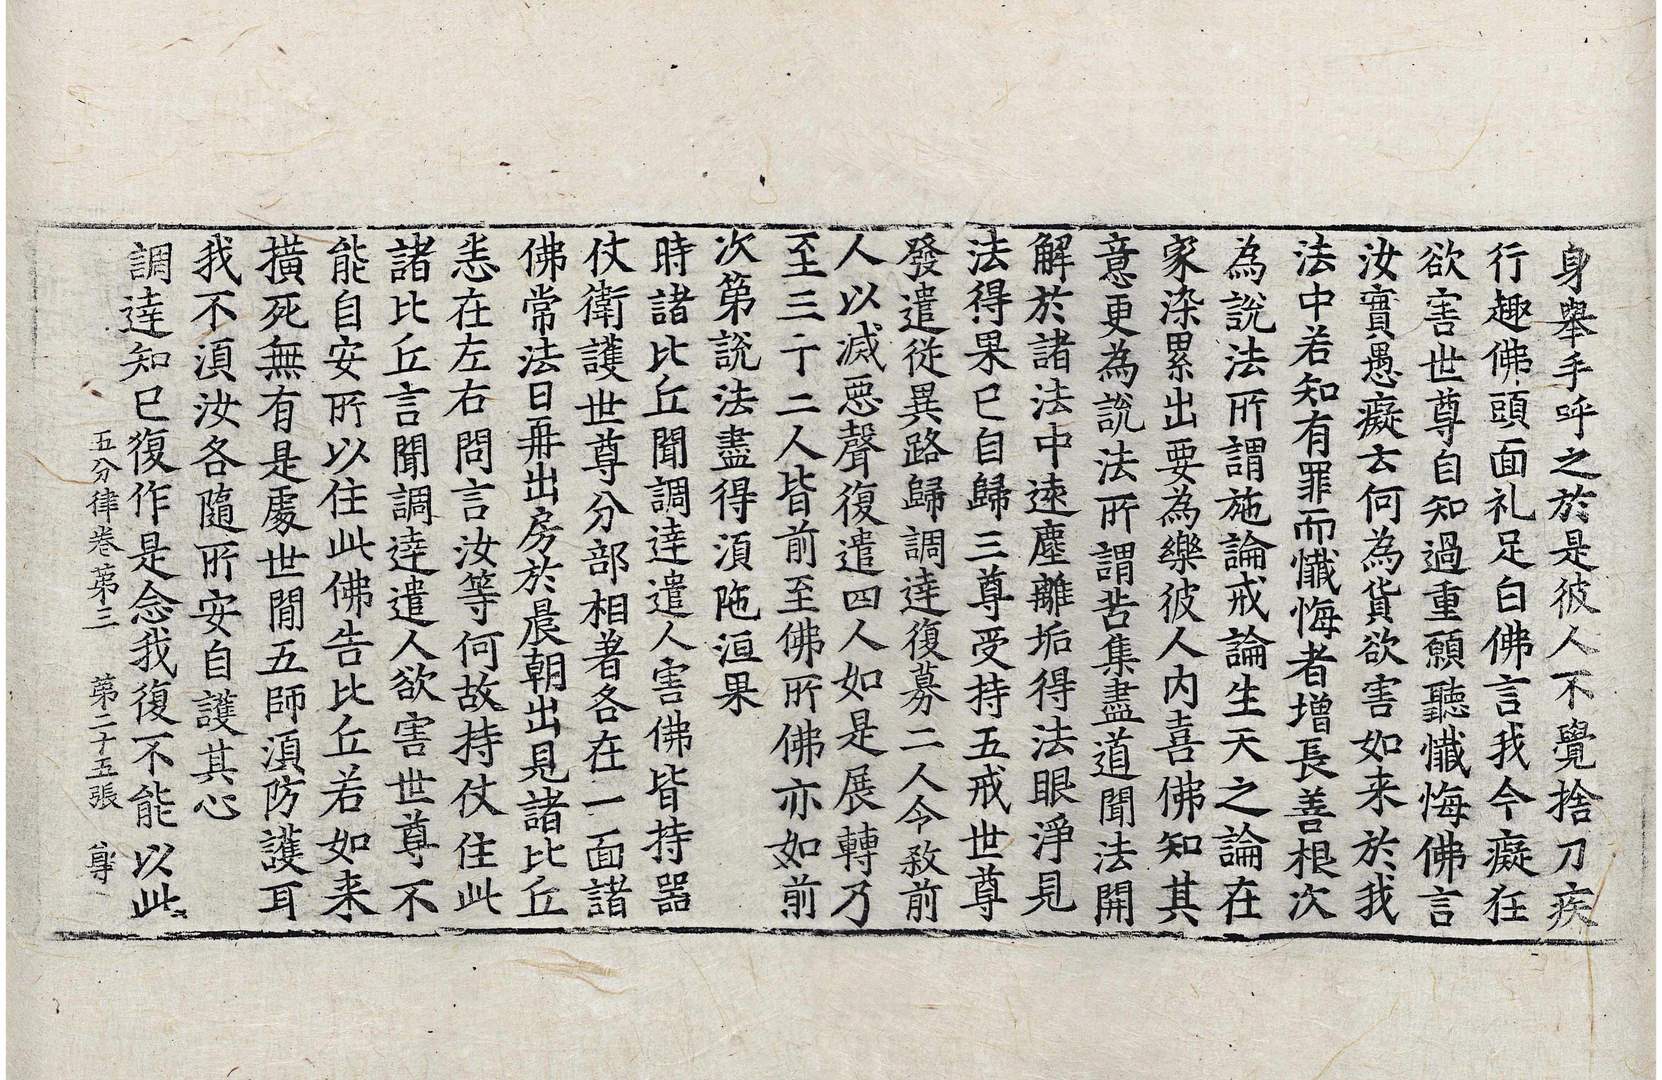 身舉手呼之於是彼人不覺捨刀疾
行趣佛頭面礼足白佛言我今癡狂
欲害世尊自知過重願聽懺悔佛言
汝實愚癡云何為貨欲害如来於我
法中若知有罪而懺悔者增長善根次
為說法所謂施論戒論生天之論在
家染累出要為樂彼人内喜佛知其
意更為說法所謂苦集盡道聞法開
解於諸法中遠塵離垢得法眼淨見
法得果已自歸三尊受持五戒世尊
發遣從異路歸調達復募二人令敎前
人以滅惡聲復遣四人如是展轉乃
至三十二人皆前至佛所佛亦如前
次第說法盡得湏陁洹果
時諸比丘聞調達遣人害佛皆持器
仗衛護世尊分部相著各在一面諸
佛常法日再出房於晨朝出見諸比丘
悉在左右問言汝等何故持仗住此
諸比丘言聞調達遣人欲害世尊不
能自安所以住此佛告比丘若如来
撗死無有是處世間五師湏防護耳
我不湏汝各隨所安自護其心
調達知已復作是念我復不能以此
五分律卷第三　第二十五張　尊